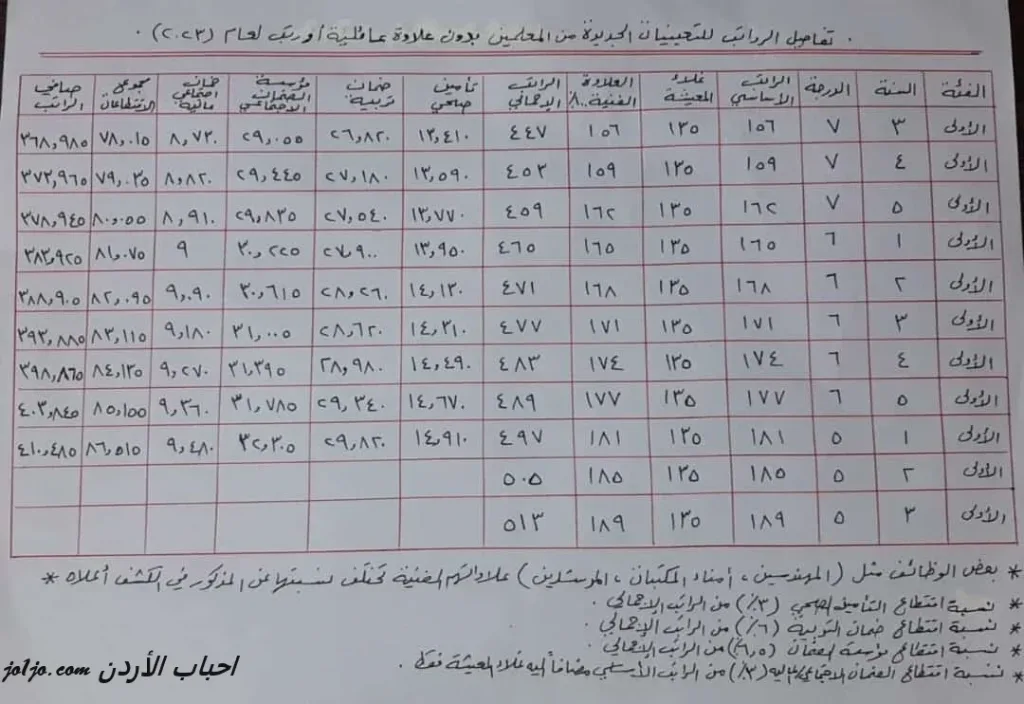 . تفاصيل الرواتب للتعيينات الجديدة من المعلمين بدون علاوة عائلية أو رتب لعام (٢٠٢٣) .
الفئة السنة الدرجة الراتب الأساسي غلاء المعيشة العلاوة الفنية ١٠٠٪ الراتب الإجمالي تأمين صحي ضمان تربية مؤسسة الضمان الاجتماعي ضمان اجتماعي مالية مجموع الاقتطاعات صافي الراتب
الأولى ٣ ٧ ١٥٦ ١٣٥ ١٥٦ ٤٤٧ ١٣,٤١٠ ٢٦,٨٢٠ ٢٩,٠٥٥ ٨,٧٣٠ ٧٨,٠١٥ ٣٦٨,٩٨٥
الأولى ٤ ٧ ١٥٩ ١٣٥ ١٥٩ ٤٥٣ ١٣,٥٩٠ ٢٧,١٨٠ ٢٩,٤٤٥ ٨,٨٢٠ ٧٩,٠٣٥ ٣٧٣,٩٦٥
الأولى ٥ ٧ ١٦٢ ١٣٥ ١٦٢ ٤٥٩ ١٣,٧٧٠ ٢٧,٥٤٠ ٢٩,٨٣٥ ٨,٩١٠ ٨٠,٠٥٥ ٣٧٨,٩٤٥
الأولى ١ ٦ ١٦٥ ١٣٥ ١٦٥ ٤٦٥ ١٣,٩٥٠ ٢٧,٩٠٠ ٣٠,٢٢٥ ٩ ٨١,٠٧٥ ٣٨٣,٩٢٥
الأولى ٢ ٦ ١٦٨ ١٣٥ ١٦٨ ٤٧١ ١٤,١٣٠ ٢٨,٢٦٠ ٣٠,٦١٥ ٩,٠٩٠ ٨٢,٠٩٥ ٣٨٨,٩٠٥
الأولى ٣ ٦ ١٧١ ١٣٥ ١٧١ ٤٧٧ ١٤,٣١٠ ٢٨,٦٢٠ ٣١,٠٠٥ ٩,١٨٠ ٨٣,١١٥ ٣٩٣,٨٨٥
الأولى ٤ ٦ ١٧٤ ١٣٥ ١٧٤ ٤٨٣ ١٤,٤٩٠ ٢٨,٩٨٠ ٣١,٣٩٥ ٩,٢٧٠ ٨٤,١٣٥ ٣٩٨,٨٦٥
الأولى ٥ ٦ ١٧٧ ١٣٥ ١٧٧ ٤٨٩ ١٤,٦٧٠ ٢٩,٣٤٠ ٣١,٧٨٥ ٩,٣٦٠ ٨٥,١٥٥ ٤٠٣,٨٤٥
الأولى ١ ٥ ١٨١ ١٣٥ ١٨١ ٤٩٧ ١٤,٩١٠ ٢٩,٨٢٠ ٣٢,٣٠٥ ٩,٤٨٠ ٨٦,٥١٥ ٤١٠,٤٨٥
الأولى ٢ ٥ ١٨٥ ١٣٥ ١٨٥ ٥٠٥
الأولى ٣ ٥ ١٨٩ ١٣٥ ١٨٩ ٥١٣
* بعض الوظائف مثل (المهندسين ، أمناء المكتبات ، المرشدين) علاواتهم الفنية تختلف نسبتها عن المذكور في الكشف أعلاه
* نسبة اقتطاع التأمين الصحي (٣٪) من الراتب الإجمالي .
* نسبة اقتطاع ضمان التربية (٦٪) من الراتب الإجمالي .
* نسبة اقتطاع مؤسسة الضمان (٦,٥٪) من الراتب الإجمالي .
* نسبة اقتطاع الضمان الاجتماعي/مالية (٣٪) من الراتب الأساسي مضافاً إليه غلاء المعيشة فقط .
احباب الأردن jo1jo.com